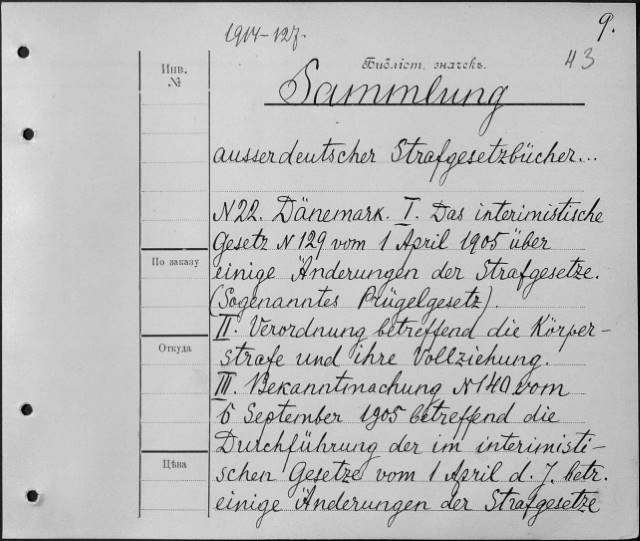 1914-127.
9.
43
Инв.
№
Библіот. значекъ.
Sammlung
ausserdeutscher Strafgesetzbücher...
N 22. Dänemark. I. Das interimistische
Gesetz N 129 vom 1 April 1905 über
По заказу
einige Änderungen der Strafgesetze.
(Sogenanntes Prügelgesetz).
II. Verordnung betreffend die Körper-
Откуда
strafe und ihre Vollziehung.
III. Bekanntmachung N 140 vom
6 September 1905 betreffend die
Durchführung der im interimisti-
Цѣна
schen Gesetze vom 1 April d. J. betr.
einige Änderungen der Strafgesetze